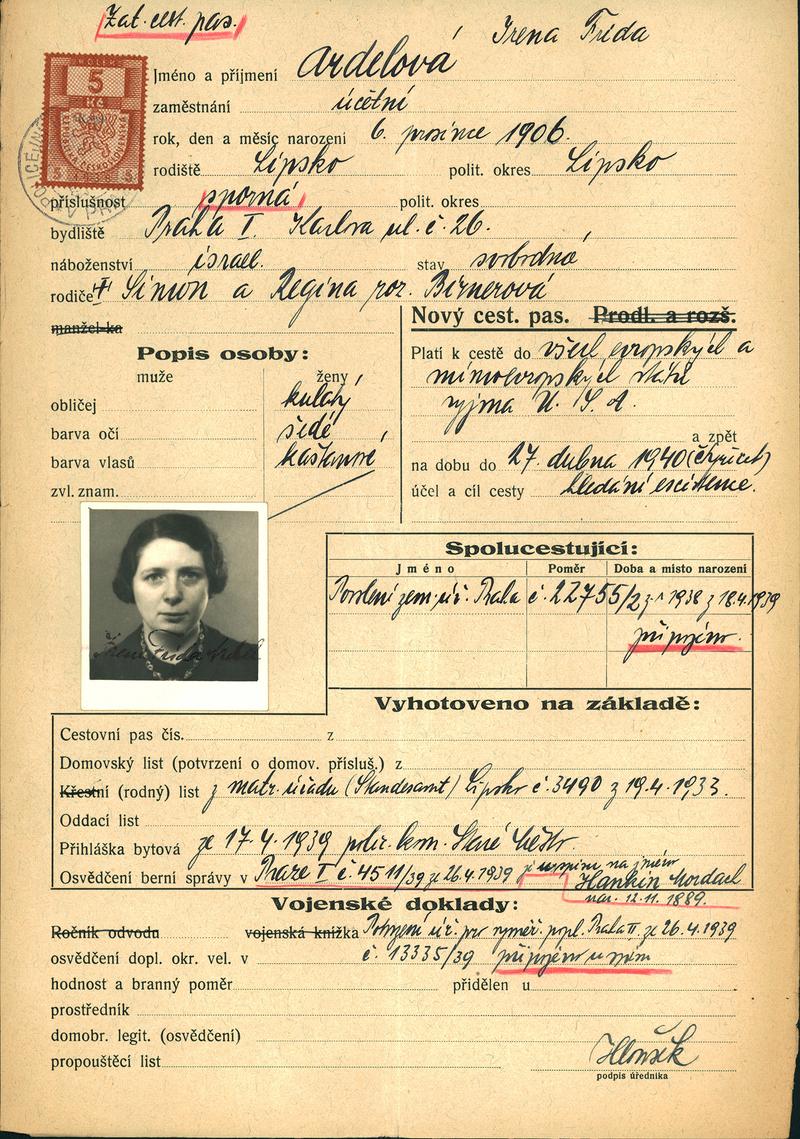 Zat. cest. pas.
Irena Frida
5
Kč
Jméno a příjmení Ardelová
zaměstnání účetní
rok, den a měsíc narození 6. prosince 1906.
rodiště Lipsko polit. okres Lipsko
příslušnost sporná polit. okres
bydliště Praha I. Karlova ul. č. 26.
náboženství israel. stav svobodná
rodiče Simon a Regina roz. Birnerová
manžel-ka
Nový cest. pas. Prodl. a rozš.
Popis osoby:
muže ženy
obličej kulatý
barva očí šedé
barva vlasů kaštanové
zvl. znam.
Platí k cestě do všech evropských a
mimoevropských států
vyjma U. S. A.
a zpět
na dobu do 27. dubna 1940 (čtyřicet)
účel a cíl cesty hledání existence.
Spolucestující:
Jméno Poměr Doba a místo narození
Povolení zem. úř. Praha č. 22755/2 1938 z 18.4.1939
připojeno.
Vyhotoveno na základě:
Cestovní pas čís. z
Domovský list (potvrzení o domov. přísluš.) z
Křestní (rodný) list z matr. úřadu (Standesamt) Lipsko č. 3490 z 19.4.1933.
Oddací list
Přihláška bytová ze 17.4.1939 polic. kom. Staré Město.
Osvědčení berní správy v Praze I č. 4511/39 ze 26.4.1939 je na jméno
Hankin Mordach
nar. 12.11.1889.
Vojenské doklady:
Ročník odvodu vojenská knížka Potvrzení úř. pro vyměř. popl. Praha II. ze 26.4.1939
osvědčení dopl. okr. vel. v č. 13335/39 připojeno
hodnost a branný poměr přidělen u
prostředník
domobr. legit. (osvědčení)
propouštěcí list
Hloušek
podpis úředníka